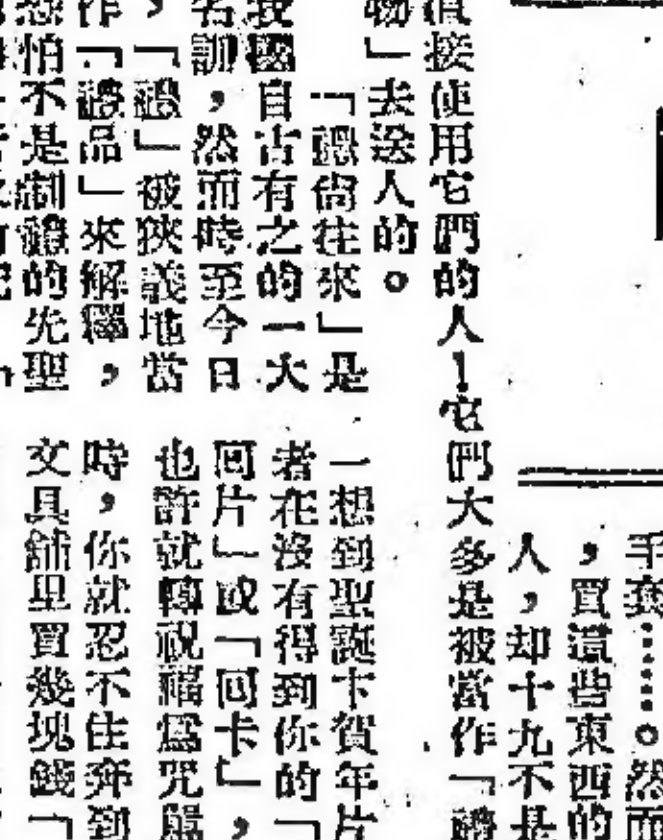 手套……。然而
，買這些東西的
人，却十九不是
直接使用它們的人！它們大多是被當作「禮
物」去送人的。
「禮尚往來」是
我國自古有之的一大
名訓，然而時至今日
，「禮」被狹義地當
作「禮品」來解釋，
恐怕不是制禮的先聖
一想到聖誕卡賀年片
者在沒有得到你的「
回片」或「回卡」，
也許就轉祝福爲咒
時，你就忍不住奔到
文具舖里買幾塊錢「